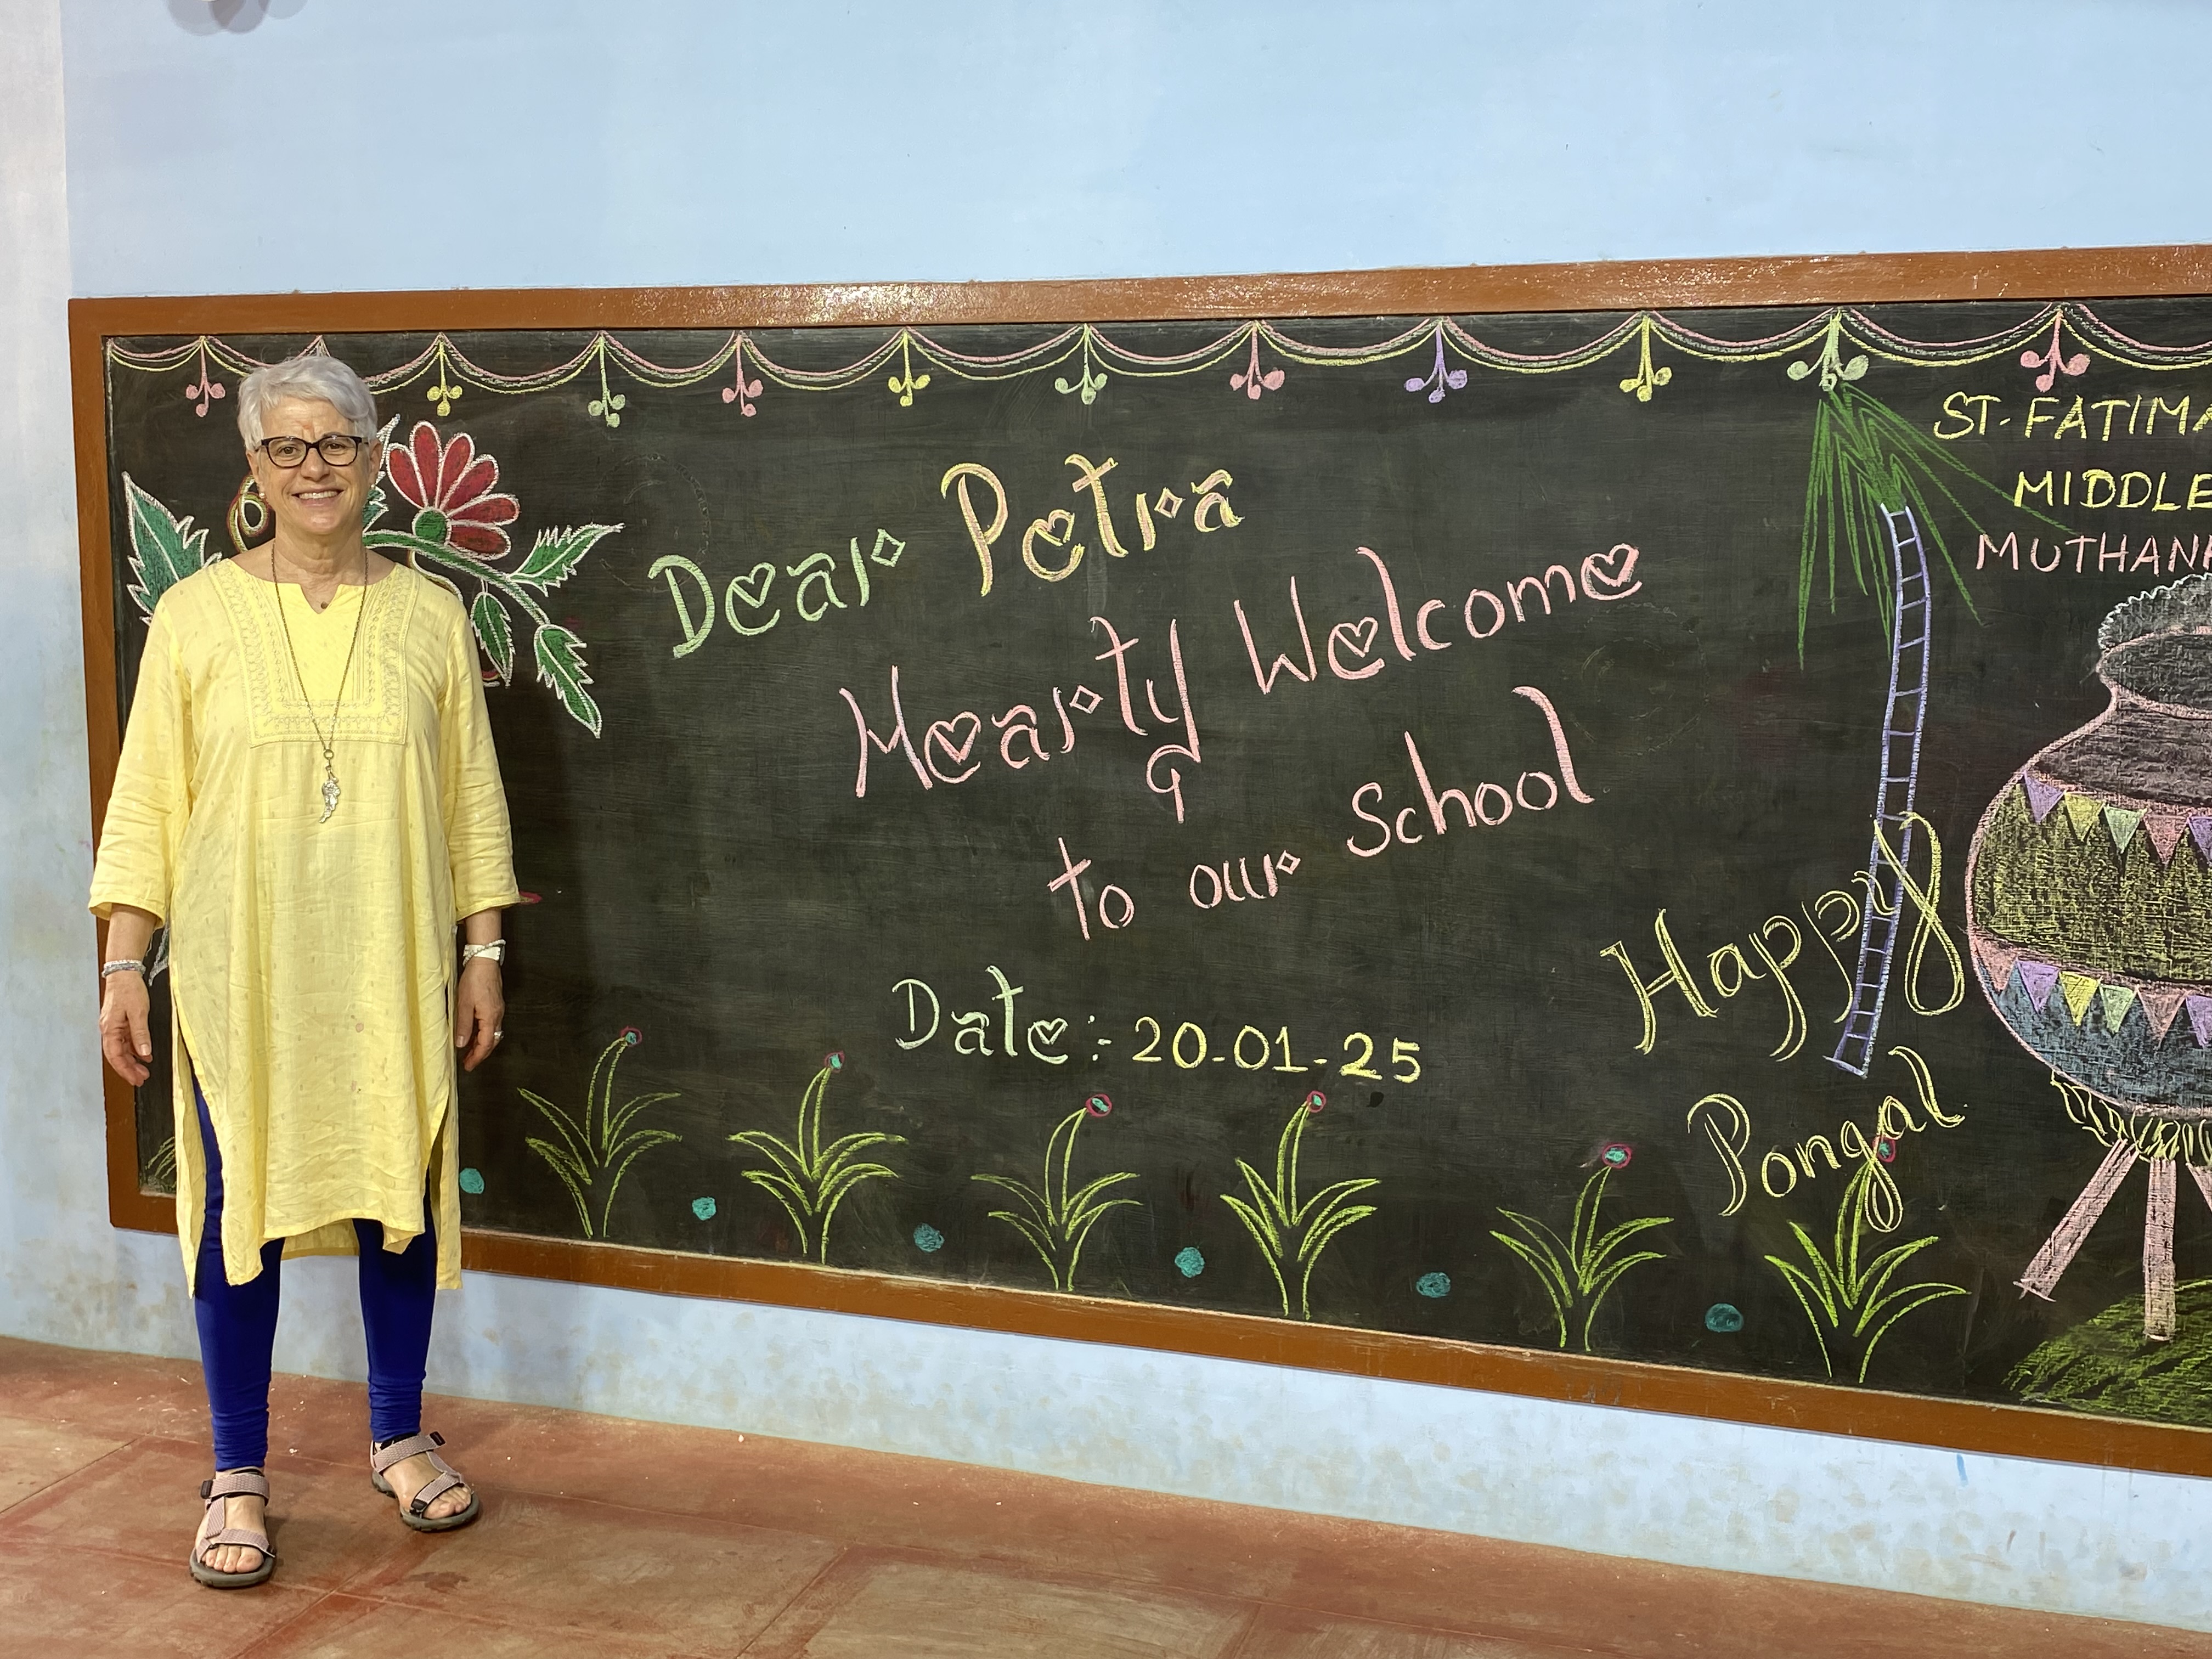 Dear Petra
Hearty Welcome
to our School
Date:- 20-01-25
ST-FATIMA
MIDDLE
Happy
Pongal